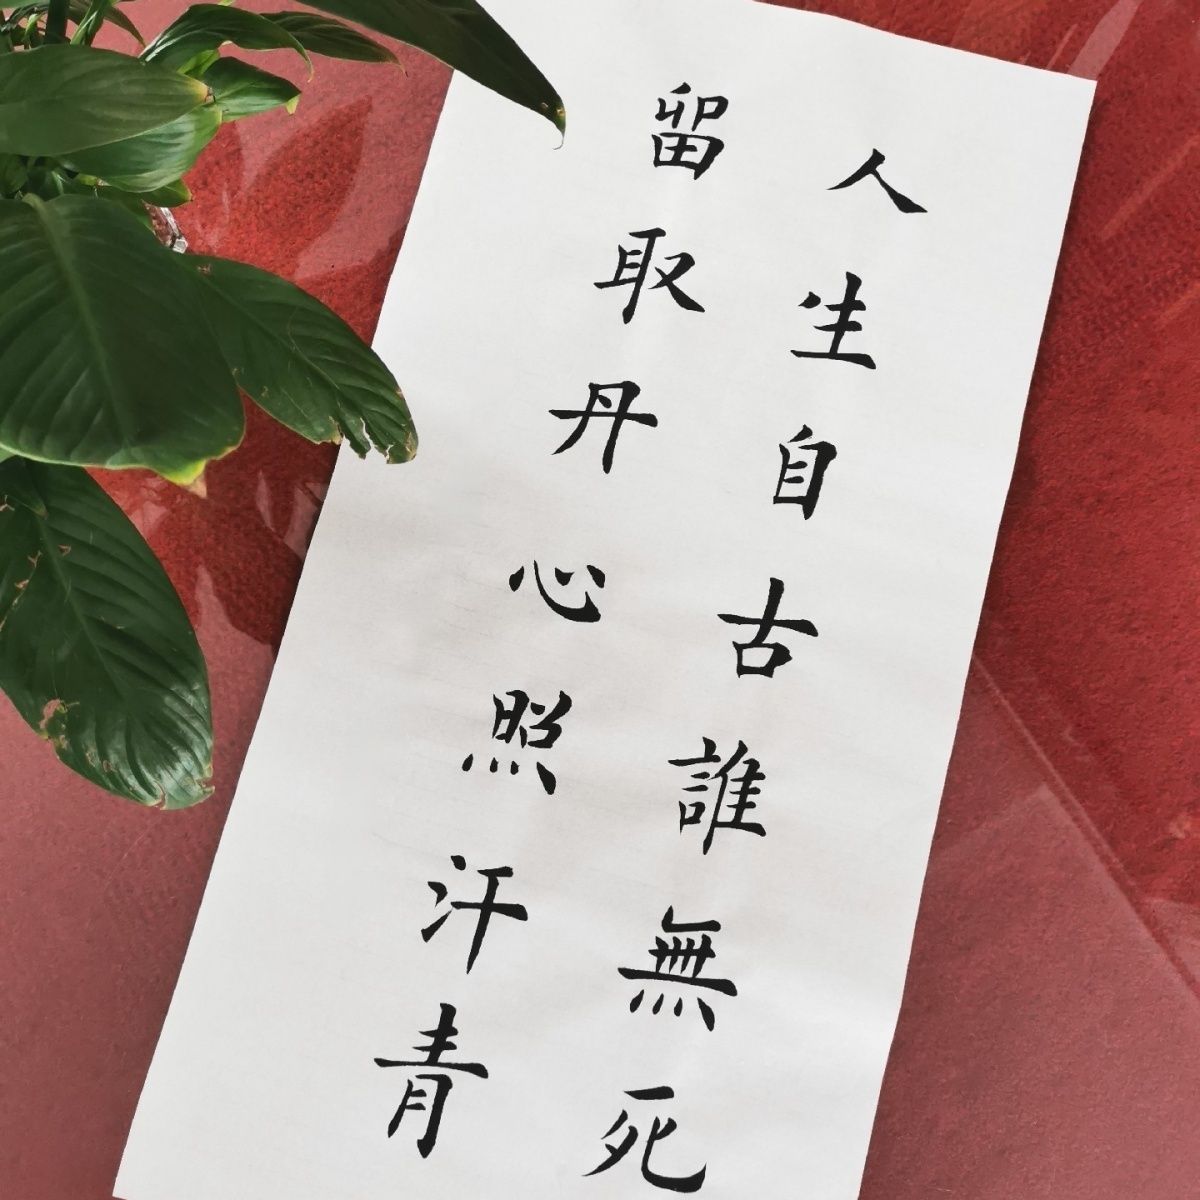 人生自古誰無死
留取丹心照汗青